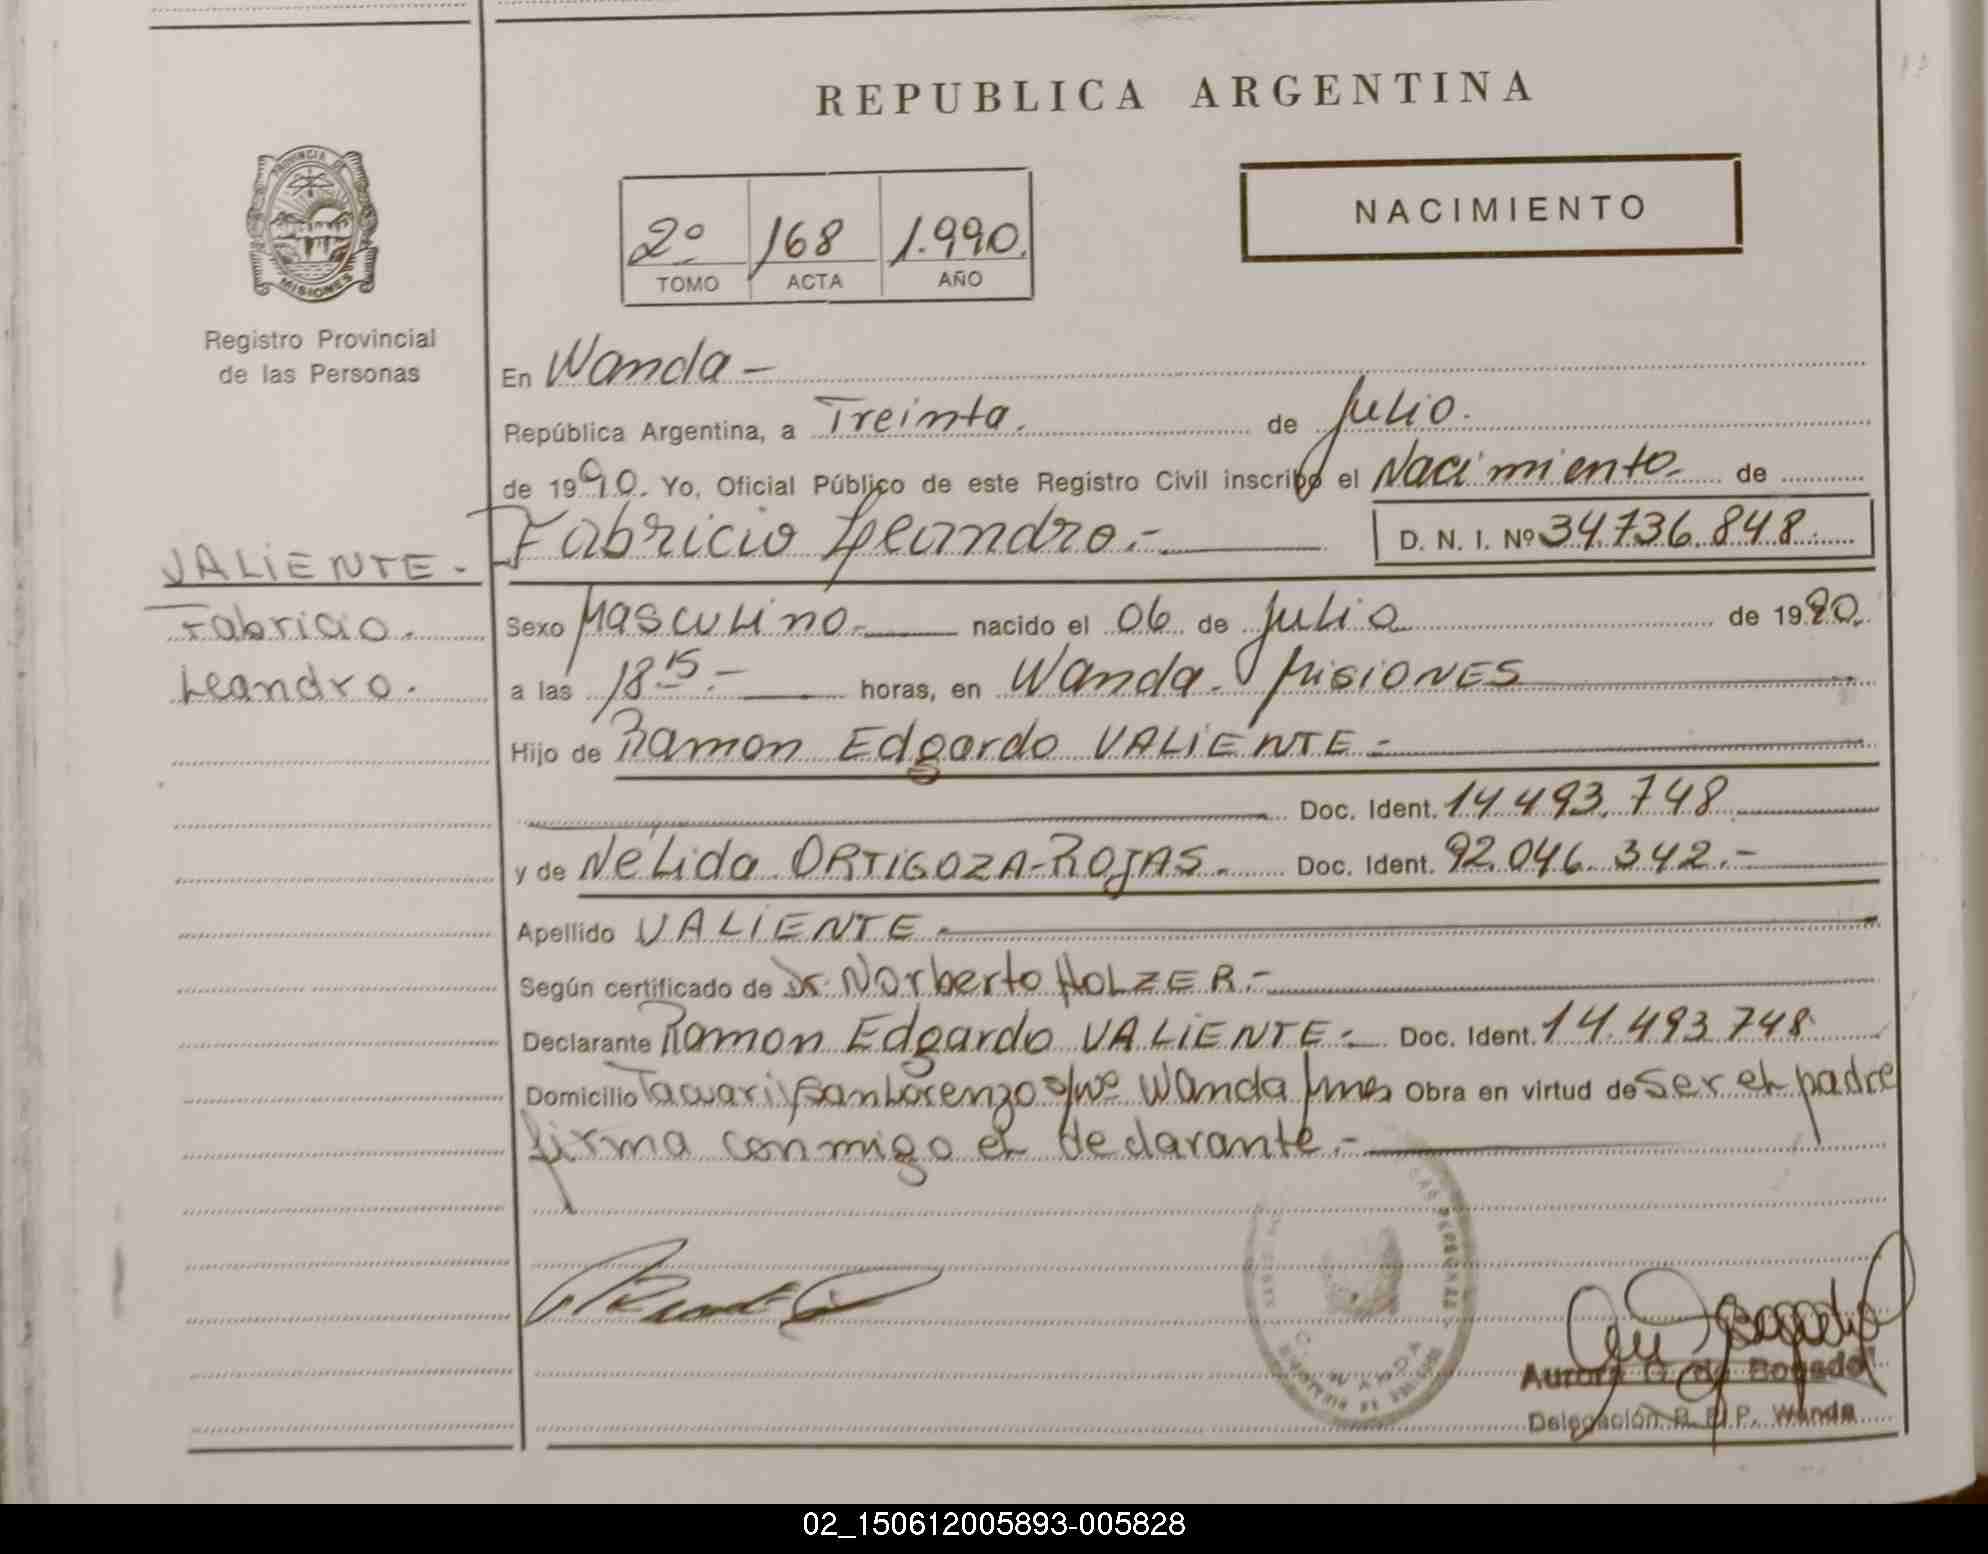 REPUBLICA ARGENTINA
NACIMIENTO
2º 168 1.990.
TOMO ACTA AÑO
PROVINCIA DE
MISIONES
Registro Provincial
de las Personas
VALIENTE.-
Fabricio.
Leandro.
En Wanda -
República Argentina, a Treinta. de Julio.
de 1990. Yo, Oficial Público de este Registro Civil inscribo el Nacimiento. de
Fabricio Leandro.- D. N. I. Nº 34.736.848
Sexo Masculino.- nacido el 06 de Julio de 1990.
a las 18.15.- horas, en Wanda. Misiones
Hijo de Ramon Edgardo VALIENTE -
Doc. Ident. 14.493.748
y de Nélida ORTIGOZA-ROJAS. Doc. Ident. 92.046.342.-
Apellido VALIENTE.
Según certificado de Dr. Norberto HOLZER.-
Declarante Ramon Edgardo VALIENTE.- Doc. Ident. 14.493.748
Domicilio Tacuari y San Lorenzo s/nº Wanda Mnes Obra en virtud de ser el padre
firma conmigo el declarante.-
LAS PERSONAS
WANDA
Aurora G. de Bogado
Delegación R. P. P. Wanda
02_150612005893-005828